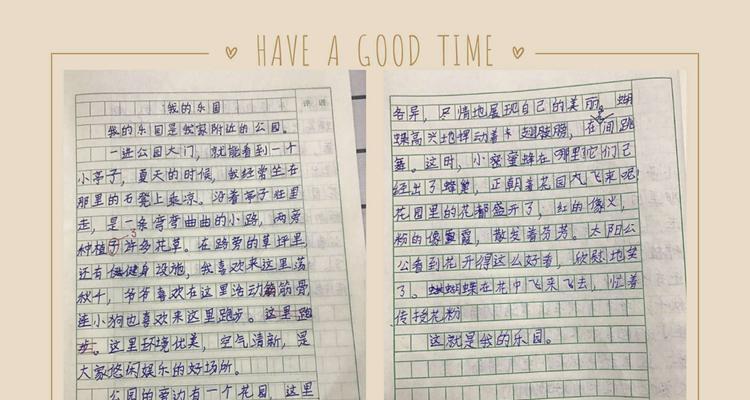 HAVE A GOOD TIME
我的乐园
我的乐园是我家附近的公园。
一进公园大门，就能看到一个
小亭子，夏天的时候，我经常坐在
那里的石凳上乘凉。沿着亭子往里
走，是一条弯弯曲曲的小路，两旁
种植了许多花草。在路旁的草坪里
还有健身设施，我喜欢来这里荡
秋千，爷爷喜欢在这里活动筋骨
连小狗也喜欢来这里跑步。这里跑
步。这里环境优美，空气清新，是
大家悠闲娱乐的好场所。
公园的旁边有一个花园，这里
各异，尽情地展现自己的美丽。蝴
蝶高兴地挥动着翅膀，在间跳
舞。这时，小蜜蜜蜂在哪里它们已
经出了蜂巢，正朝着花园飞来呢！
花园里的花都盛开了，红的像火，
粉的像霞，散发着芬芳。太阳公
公看到花开得这么好看，欣慰地笑
了。蝴蝶在花中飞来飞去，忙着
传授花粉
这就是我的乐园。